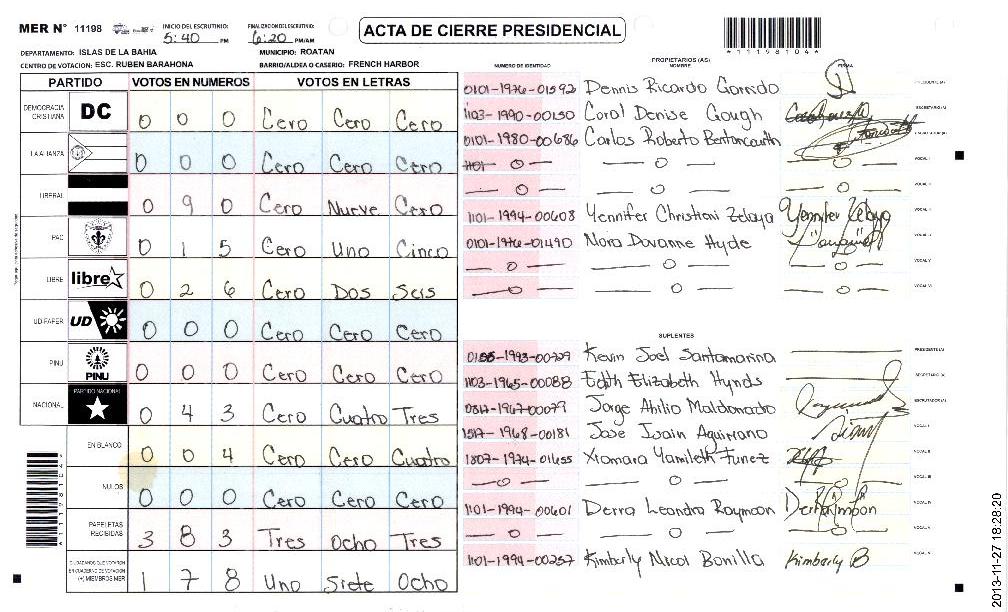 MER N° 11198 INICIO DEL ESCRUTINIO: 5:40 PM FINALIZACION DEL ESCRUTINIO: 6:20 PM/AM
ACTA DE CIERRE PRESIDENCIAL
*11198104*
DEPARTAMENTO: ISLAS DE LA BAHIA MUNICIPIO: ROATAN
CENTRO DE VOTACION: ESC. RUBEN BARAHONA BARRIO/ALDEA O CASERIO: FRENCH HARBOR
PARTIDO VOTOS EN NUMEROS VOTOS EN LETRAS
DEMOCRACIA CRISTIANA DC 0 0 0 Cero Cero Cero
LA ALIANZA 0 0 0 Cero Cero Cero
LIBERAL 0 9 0 Cero Nueve Cero
PAC 0 1 5 Cero Uno Cinco
LIBRE libre 0 2 6 Cero Dos Seis
UD/FAPER UD 0 0 0 Cero Cero Cero
PINU PINU 0 0 0 Cero Cero Cero
NACIONAL PARTIDO NACIONAL 0 4 3 Cero Cuatro Tres
EN BLANCO 0 0 4 Cero Cero Cuatro
NULOS 0 0 0 Cero Cero Cero
PAPELETAS RECIBIDAS 3 8 3 Tres Ocho Tres
CIUDADANOS QUE VOTARON EN CUADERNO DE VOTACION (+) MIEMBROS MER 1 7 8 Uno Siete Ocho
PROPIETARIOS (AS)
NUMERO DE IDENTIDAD NOMBRE FIRMA
0101-1976-01592 Dennis Ricardo Gorredo PRESIDENTE (A)
1103-1990-00150 Carol Denise Gough SECRETARIO (A)
0101-1980-00686 Carlos Roberto Bertoncourth ESCRUTADOR (A)
1101 — 0 — — 0 — — 0 — VOCAL I
— 0 — — 0 — — 0 — VOCAL II
1101-1994-00608 Yennifer Christian Zelaya Yennifer Zelaya VOCAL III
0101-1976-01490 Nora Dovanne Hyde VOCAL IV
— 0 — — 0 — — 0 — VOCAL V
— 0 — — 0 — — 0 — VOCAL VI
SUPLENTES
-1993-00729 Kevin Joel Santamarina PRESIDENTE (A)
1103-1965-00088 Edith Elizabeth Hynds SECRETARIO (A)
-1967-00079 Jorge Ahilio Maldonado ESCRUTADOR (A)
-1968-00181 Jose Ivain Aguiriano VOCAL I
1807-1974-01655 Xiomara Yamileth Funez VOCAL II
— 0 — — 0 — VOCAL III
1101-1994-00601 Derra Leandra Raymoon VOCAL IV
— 0 — — 0 — — 0 — VOCAL V
1101-1994-00257 Kimberly Nicol Bonilla Kimberly B VOCAL VI
2013-11-27 18:28:20